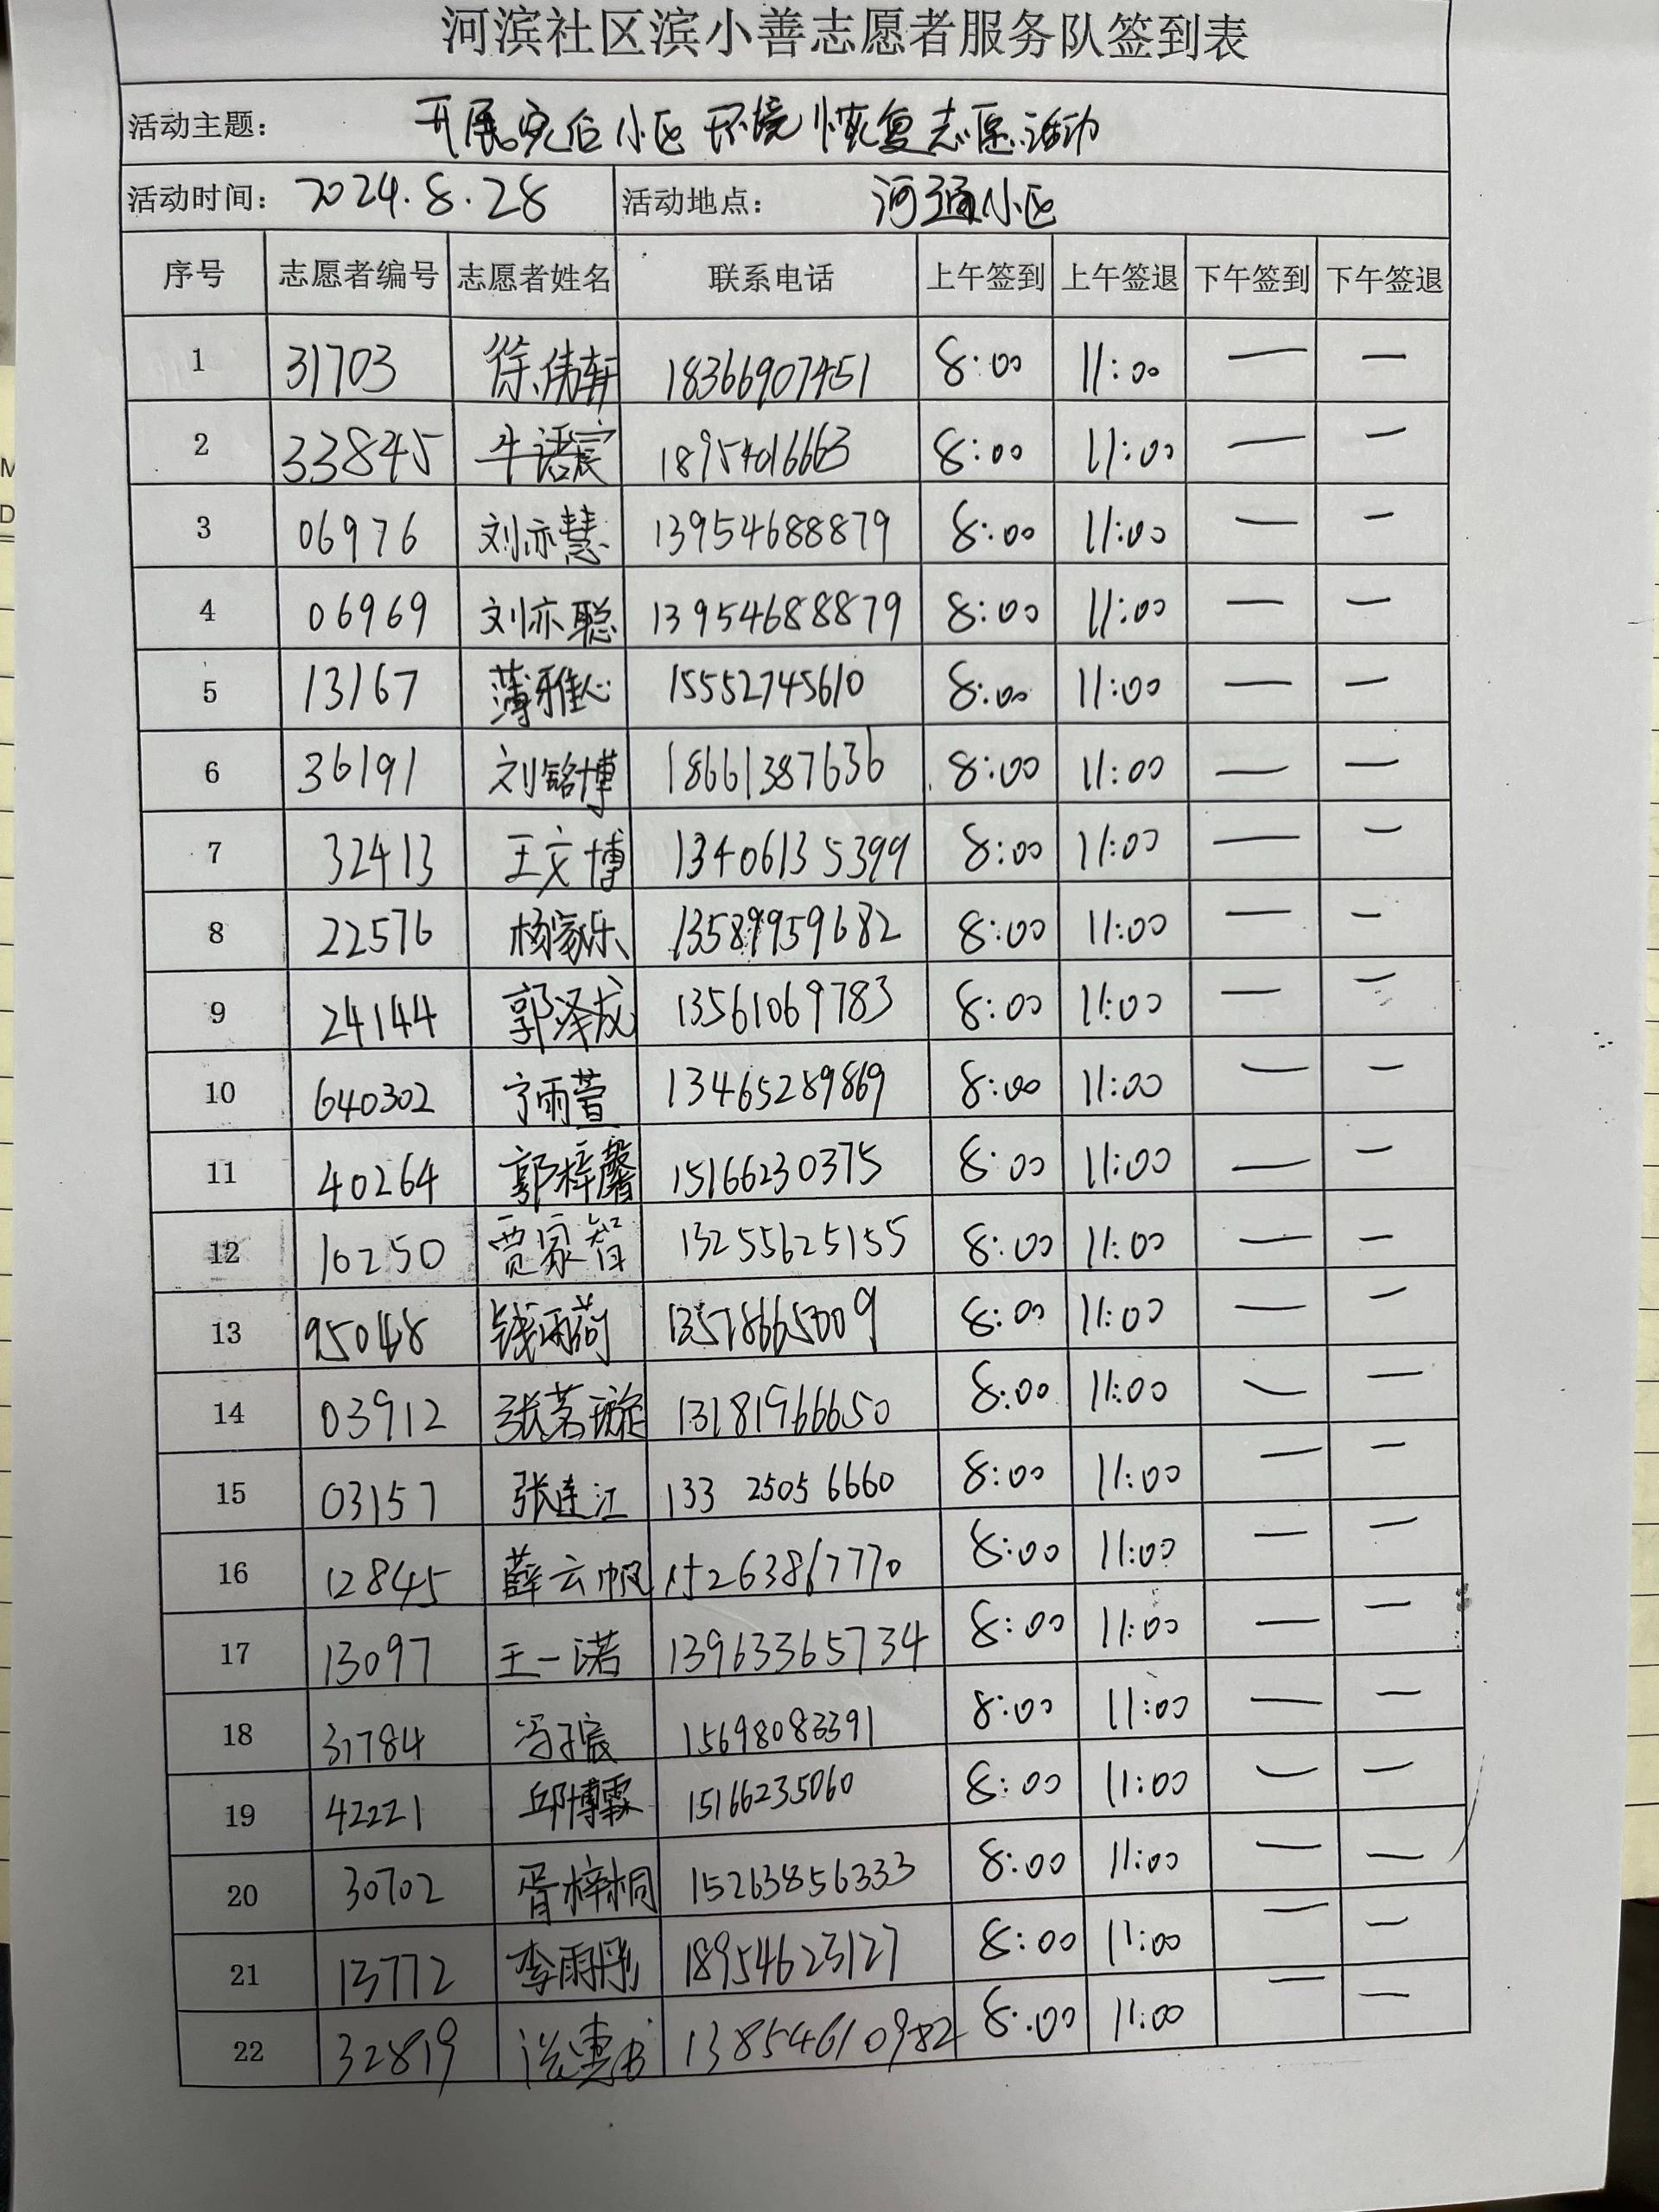 河滨社区滨小善志愿者服务队签到表
活动主题： 开展灾后小区环境恢复志愿活动
活动时间： 2024.8.28 活动地点： 河通小区
序号 志愿者编号 志愿者姓名 联系电话 上午签到 上午签退 下午签到 下午签退
1 31703 徐伟轩 18366907451 8:00 11:00 — —
2 33845 牛语宸 18954016663 8:00 11:00 — —
3 06976 刘亦慧 13954688879 8:00 11:00 — —
4 06969 刘亦聪 13954688879 8:00 11:00 — —
5 13167 薄雅心 15552745610 8:00 11:00 — —
6 36191 刘铭博 18661387636 8:00 11:00 — —
7 32413 王文博 13406135399 8:00 11:00 — —
8 22576 杨家乐 13589959682 8:00 11:00 — —
9 24144 郭泽成 13561069783 8:00 11:00 — —
10 640302 雨萱 13465289869 8:00 11:00 — —
11 40264 郭梓馨 15166230375 8:00 11:00 — —
12 10250 贾家智 13255625155 8:00 11:00 — —
13 95048 钱雨荷 8:00 11:00 — —
14 03912 张茗璇 13181966650 8:00 11:00 — —
15 03157 张连江 133 2505 6660 8:00 11:00 — —
16 12845 薛云帆 8:00 11:00 — —
17 13097 王一诺 13963365734 8:00 11:00 — —
18 31784 冯子宸 15698083391 8:00 11:00 — —
19 42221 邱博霖 15166235060 8:00 11:00 — —
20 30702 胥梓桐 15263856333 8:00 11:00 — —
21 13772 李雨彤 18954623127 8:00 11:00 — —
22 32819 13854610982 8:00 11:00 — —